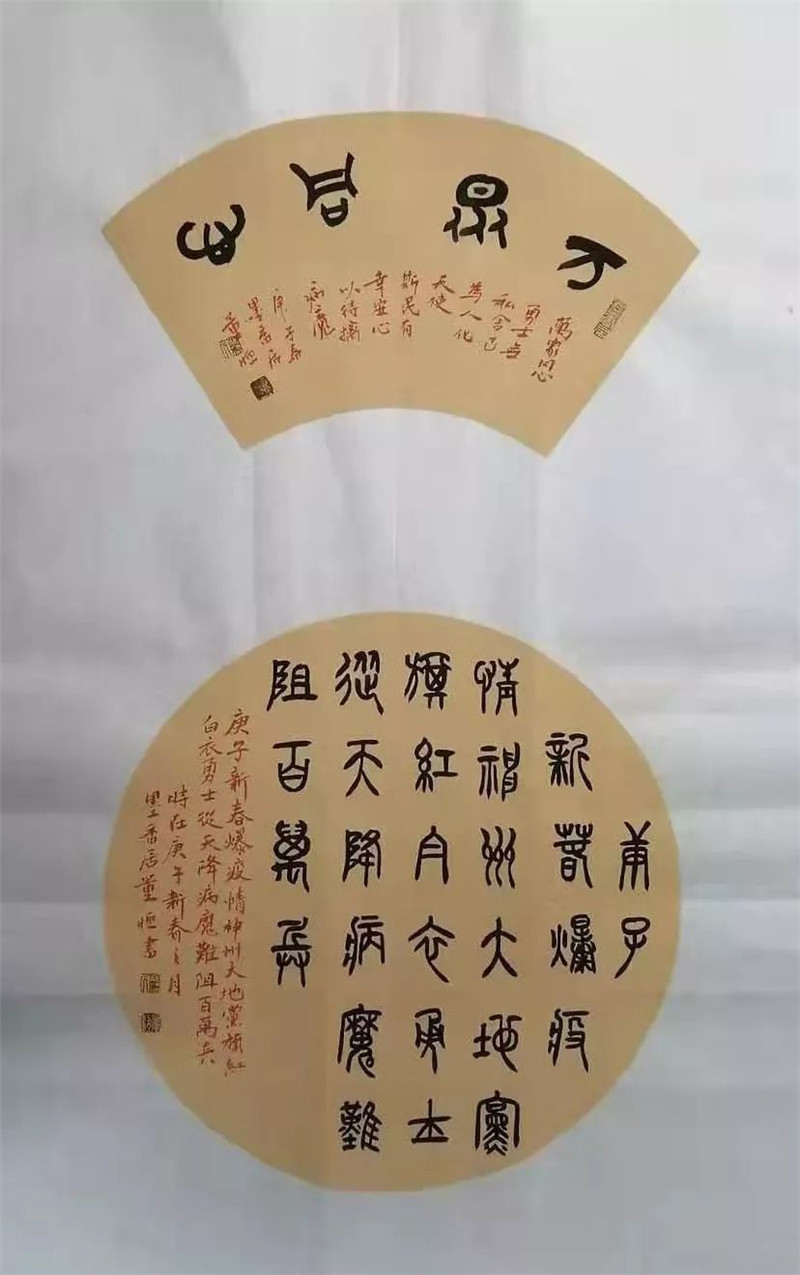 万眾
萬眾同心
勇士無
私舍己
為人化
天使
斯民有
幸安心
以待擒
病魔
庚子春
墨香居
董恒
庚子
新春爆疫
情神州大地黨
旗紅白衣勇士
從天降病魔難
阻百萬兵
庚子新春爆疫情神州大地黨旗紅
白衣勇士從天降病魔難阻百萬兵
時在庚子新春之月
墨香居董恒書